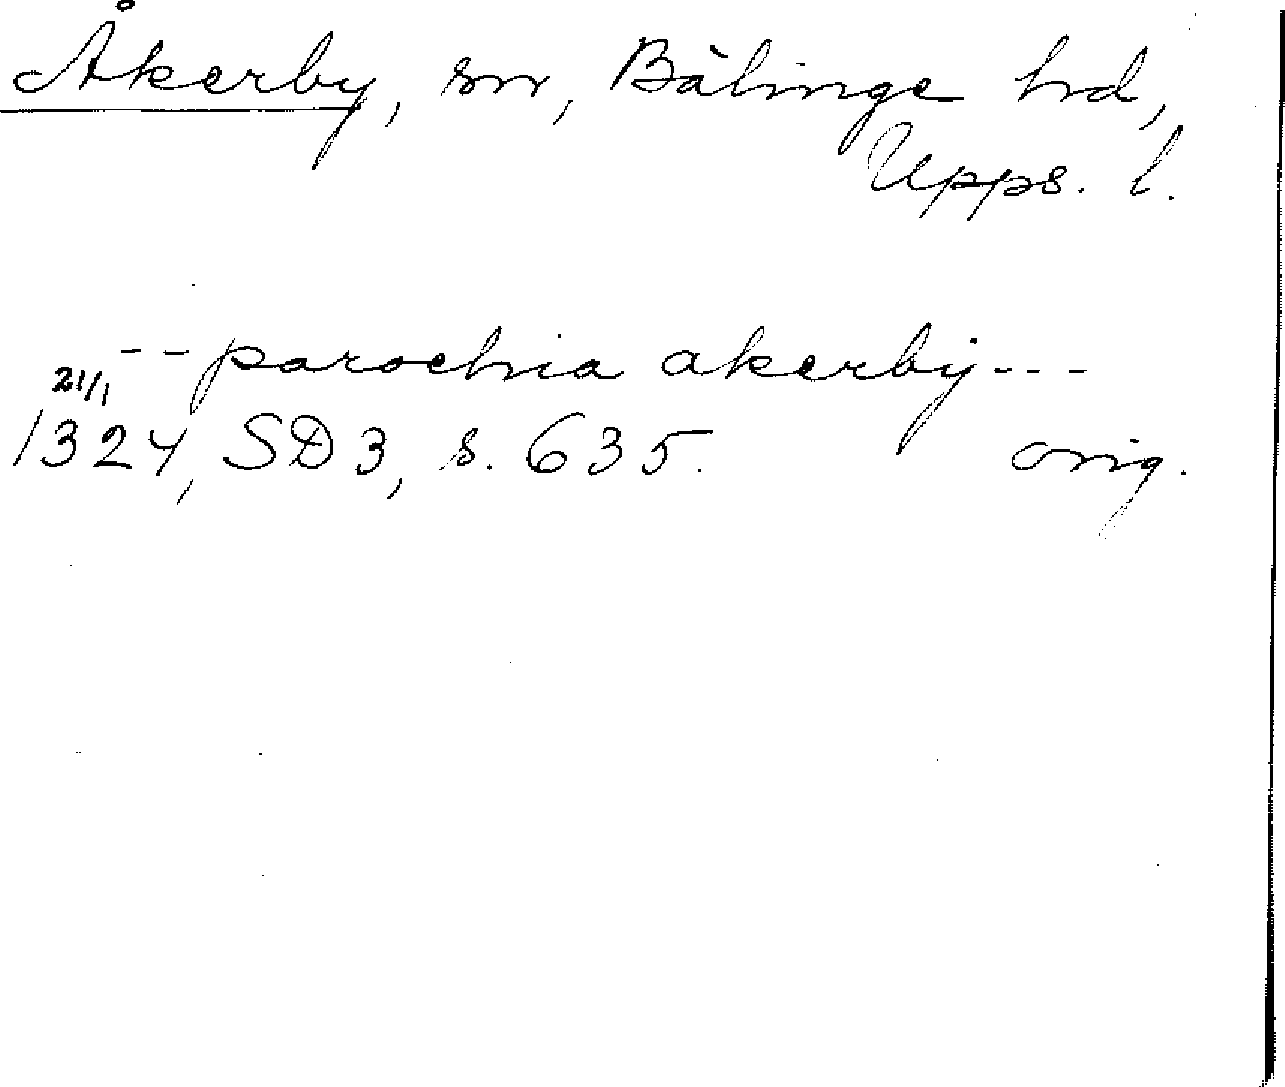 Åkerby, sn, Bälinge hd,
Upps. l.
-- parochia akerbÿ ---
21/1
1324, SD3, s. 635. orig.